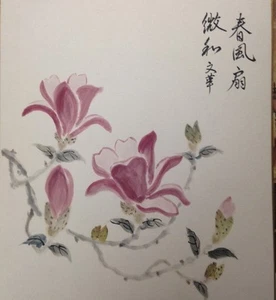 春風扇
微和文華